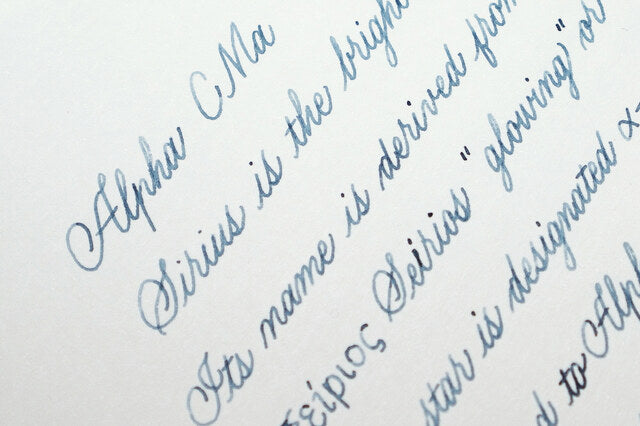 Alpha CMa
Sirius is the brigh
Its name is derived from
είριος Seirios "glowing" or
star is designated α
d to Alph